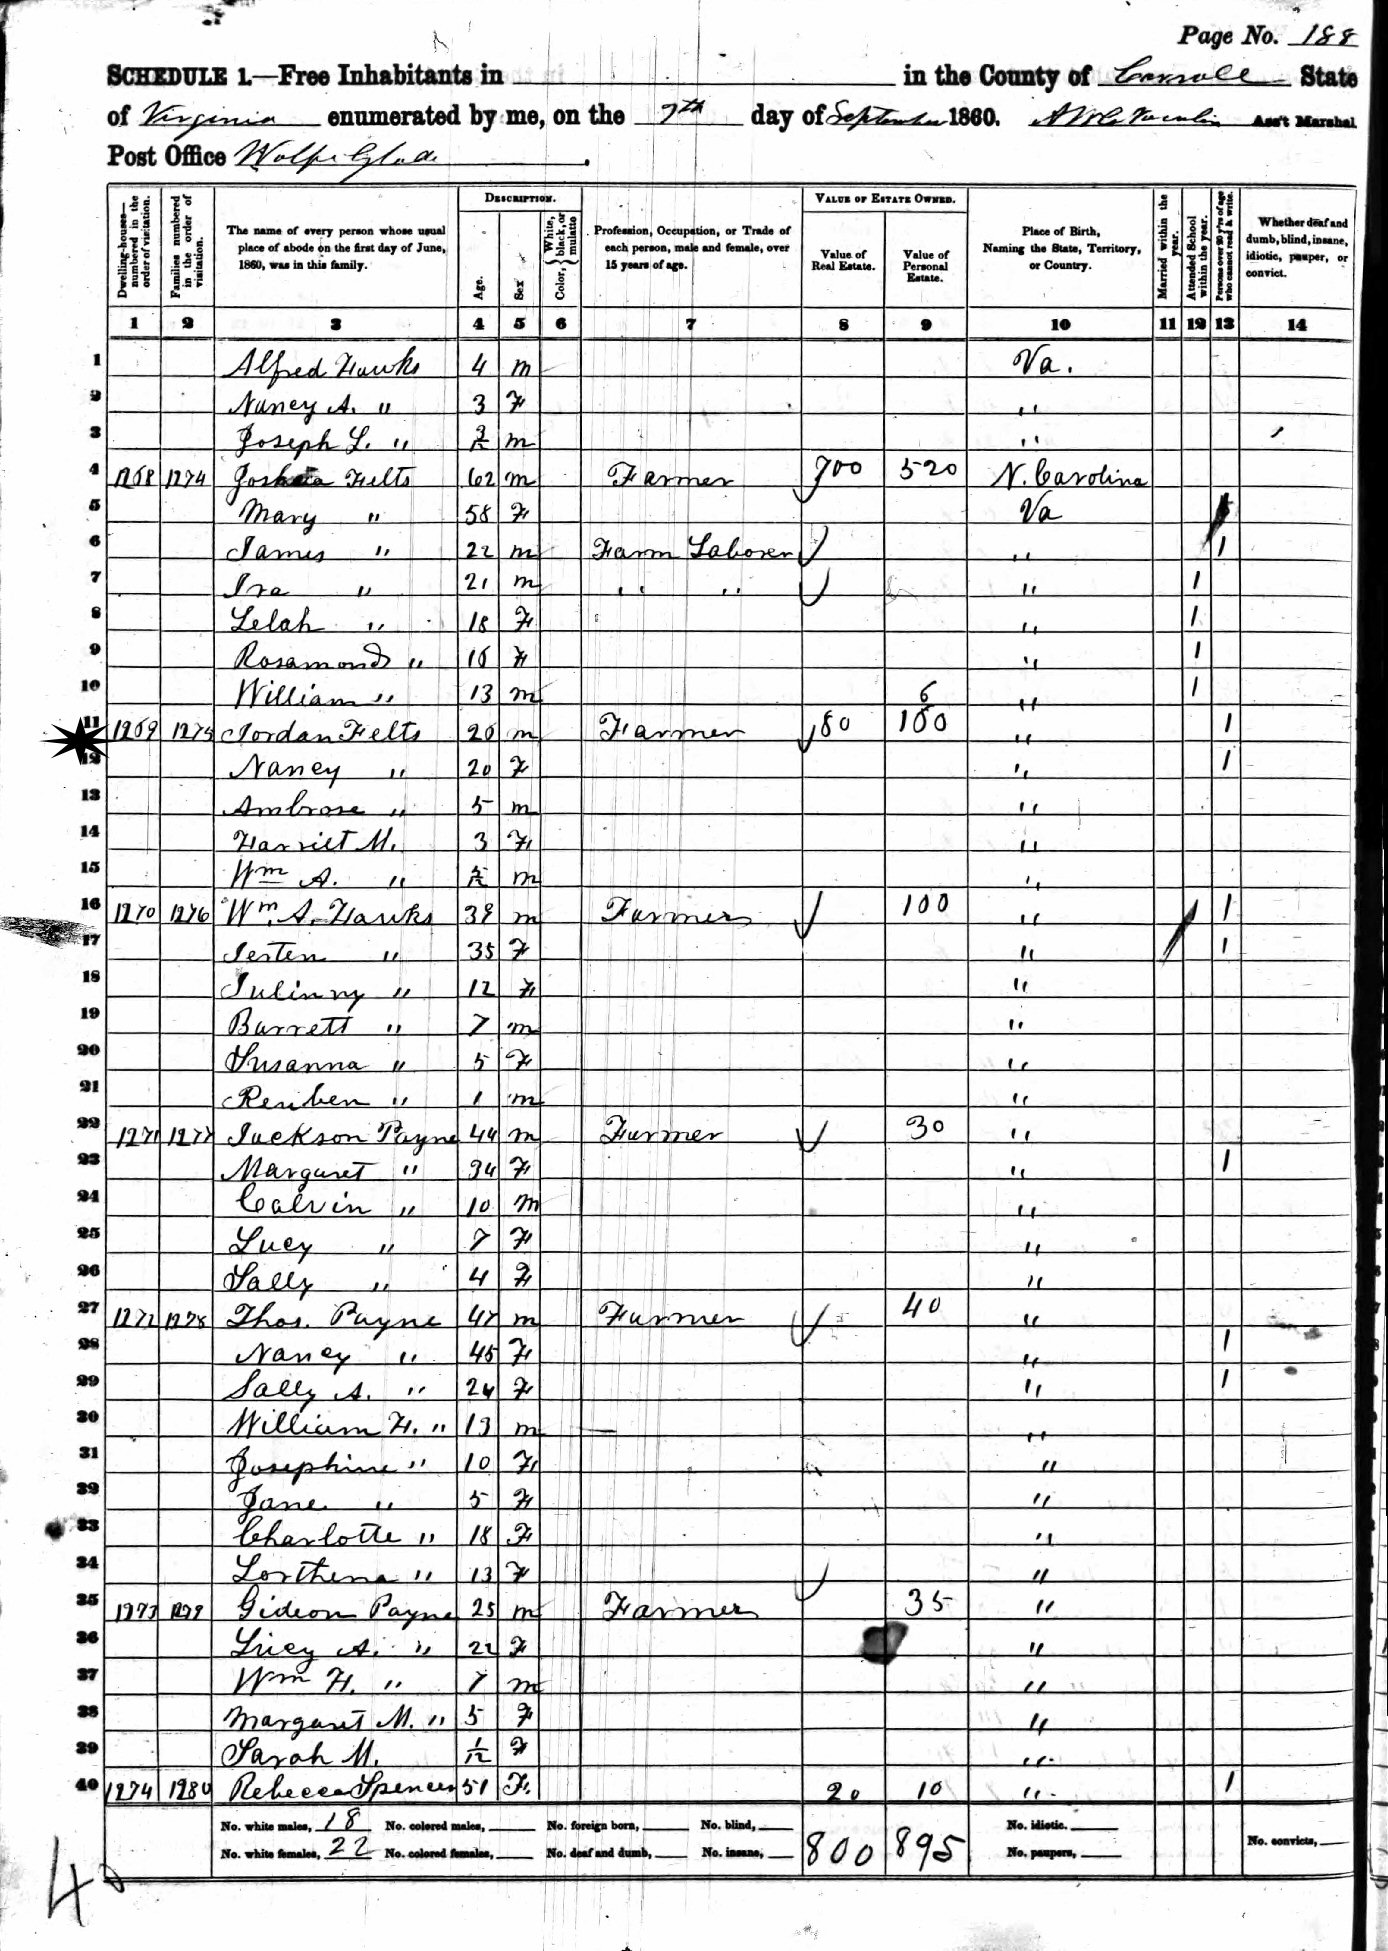 Page No. 188
SCHEDULE 1.—Free Inhabitants in in the County of Carroll State
of Virginia enumerated by me, on the 7th day of September 1860. Ass't Marshal
Post Office Wolfe Glade.
Dwelling-houses—numbered in the order of visitation. Families numbered in the order of visitation. The name of every person whose usual place of abode on the first day of June, 1860, was in this family. DESCRIPTION. Age. Sex Color, White, black, or mulatto Profession, Occupation, or Trade of each person, male and female, over 15 years of age. VALUE OF ESTATE OWNED. Value of Real Estate. Value of Personal Estate. Place of Birth, Naming the State, Territory, or Country. Married within the year. Attended School within the year. Persons over 20 y'rs of age who cannot read & write. Whether deaf and dumb, blind, insane, idiotic, pauper, or convict.
1 2 3 4 5 6 7 8 9 10 11 12 13 14
1 Alfred Hawks 4 m Va.
2 Nancy A. " 3 F "
3 Joseph L. " 3/12 m "
4 1268 1274 Joshua Felts 62 m Farmer 700 520 N. Carolina
5 Mary " 58 F Va
6 James " 22 m Farm Laborer " 1
7 Ira " 21 m " " " 1
8 Lelah " 18 F " 1
9 Rosamond " 16 F " 1
10 William " 13 m " 1
11 1269 1275 Jordan Felts 26 m Farmer 80 100 " 1
12 Nancy " 20 F " 1
13 Ambrose " 5 m "
14 Harriet M. 3 F "
15 Wm A. " m "
16 1270 1276 Wm. A. Hawks 39 m Farmer 100 " 1
17 Jerten " 35 F " 1
18 " 12 F "
19 Barrett " 7 m "
20 Susanna " 5 F "
21 Reuben " 1 m "
22 1271 1277 Jackson Payne 44 m Farmer 30 "
23 Margaret " 34 F " 1
24 Calvin " 10 m "
25 Lucy " 7 F "
26 Sally " 4 F "
27 1272 1278 Thos. Payne 47 m Farmer 40 "
28 Nancy " 45 F " 1
29 Sally A. " 24 F " 1
30 William H. " 13 m "
31 Josephine " 10 F "
32 Jane " 5 F "
33 Charlotte " 18 F "
34 Lorthena " 13 F "
35 1273 1279 Gideon Payne 25 m Farmer 35 "
36 Lucy A. " 22 F "
37 Wm H. " 7 m "
38 Margaret M. " 5 F "
39 Sarah M. 1/12 F "
40 1274 1280 Rebecca Spencer 51 F. 20 10 " 1
No. white males, 18 No. colored males, No. foreign born, No. blind, No. idiotic.
No. white females, 22 No. colored females, No. deaf and dumb, No. insane, 800 895 No. paupers, No. convicts,
40